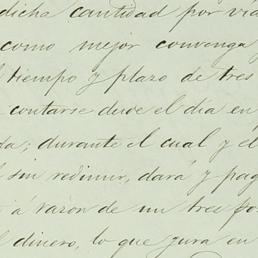 dicha cantidad por via
como mejor convenga
tiempo y plazo de tres
contarse desde el dia en
da; durante el cual y el
sin redimir, dará y pag
á razon de un tres por
dinero, lo que jura en